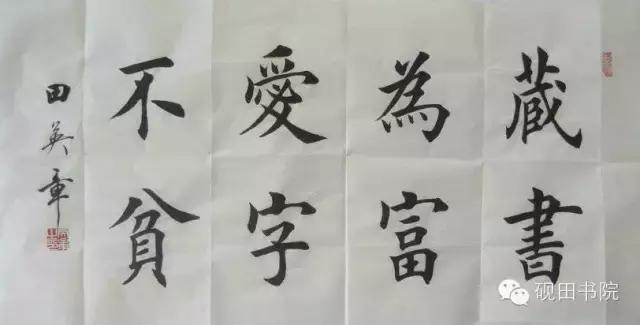 藏書
為富
愛字
不貧
田英章
砚田书院